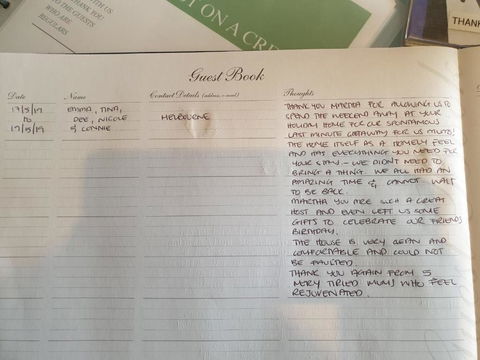 WITH US
THANK YOU
WHO ARE
REGULARS
T ON A CRE
THANK
Guest Book
Date Name Contact Details (address, e-mail) Thoughts
17/5/19 EMMA, TINA, MELBOURNE
TO DEE, NICOLE
19/5/19 & CONNIE
THANK YOU MARTHA FOR ALLOWING US TO
SPEND THE WEEKEND AWAY AT YOUR
HOLIDAY HOME FOR OUR SPONTANEOUS
LAST MINUTE GETAWAY FOR US MUMS!
THE HOME ITSELF HAS A HOMELY FEEL
AND HAS EVERYTHING YOU NEED FOR
YOUR STAY - WE DIDN'T NEED TO
BRING A THING. WE ALL HAD AN
AMAZING TIME & CANNOT WAIT
TO BE BACK.
MARTHA YOU ARE SUCH A GREAT
HOST AND EVEN LEFT US SOME
GIFTS TO CELEBRATE OUR FRIENDS
BIRTHDAY.
THE HOUSE IS VERY CLEAN AND
COMFORTABLE AND COULD NOT
BE FAULTED.
THANK YOU AGAIN FROM 5
VERY TIRED MUMS WHO FEEL
REJUVENATED.